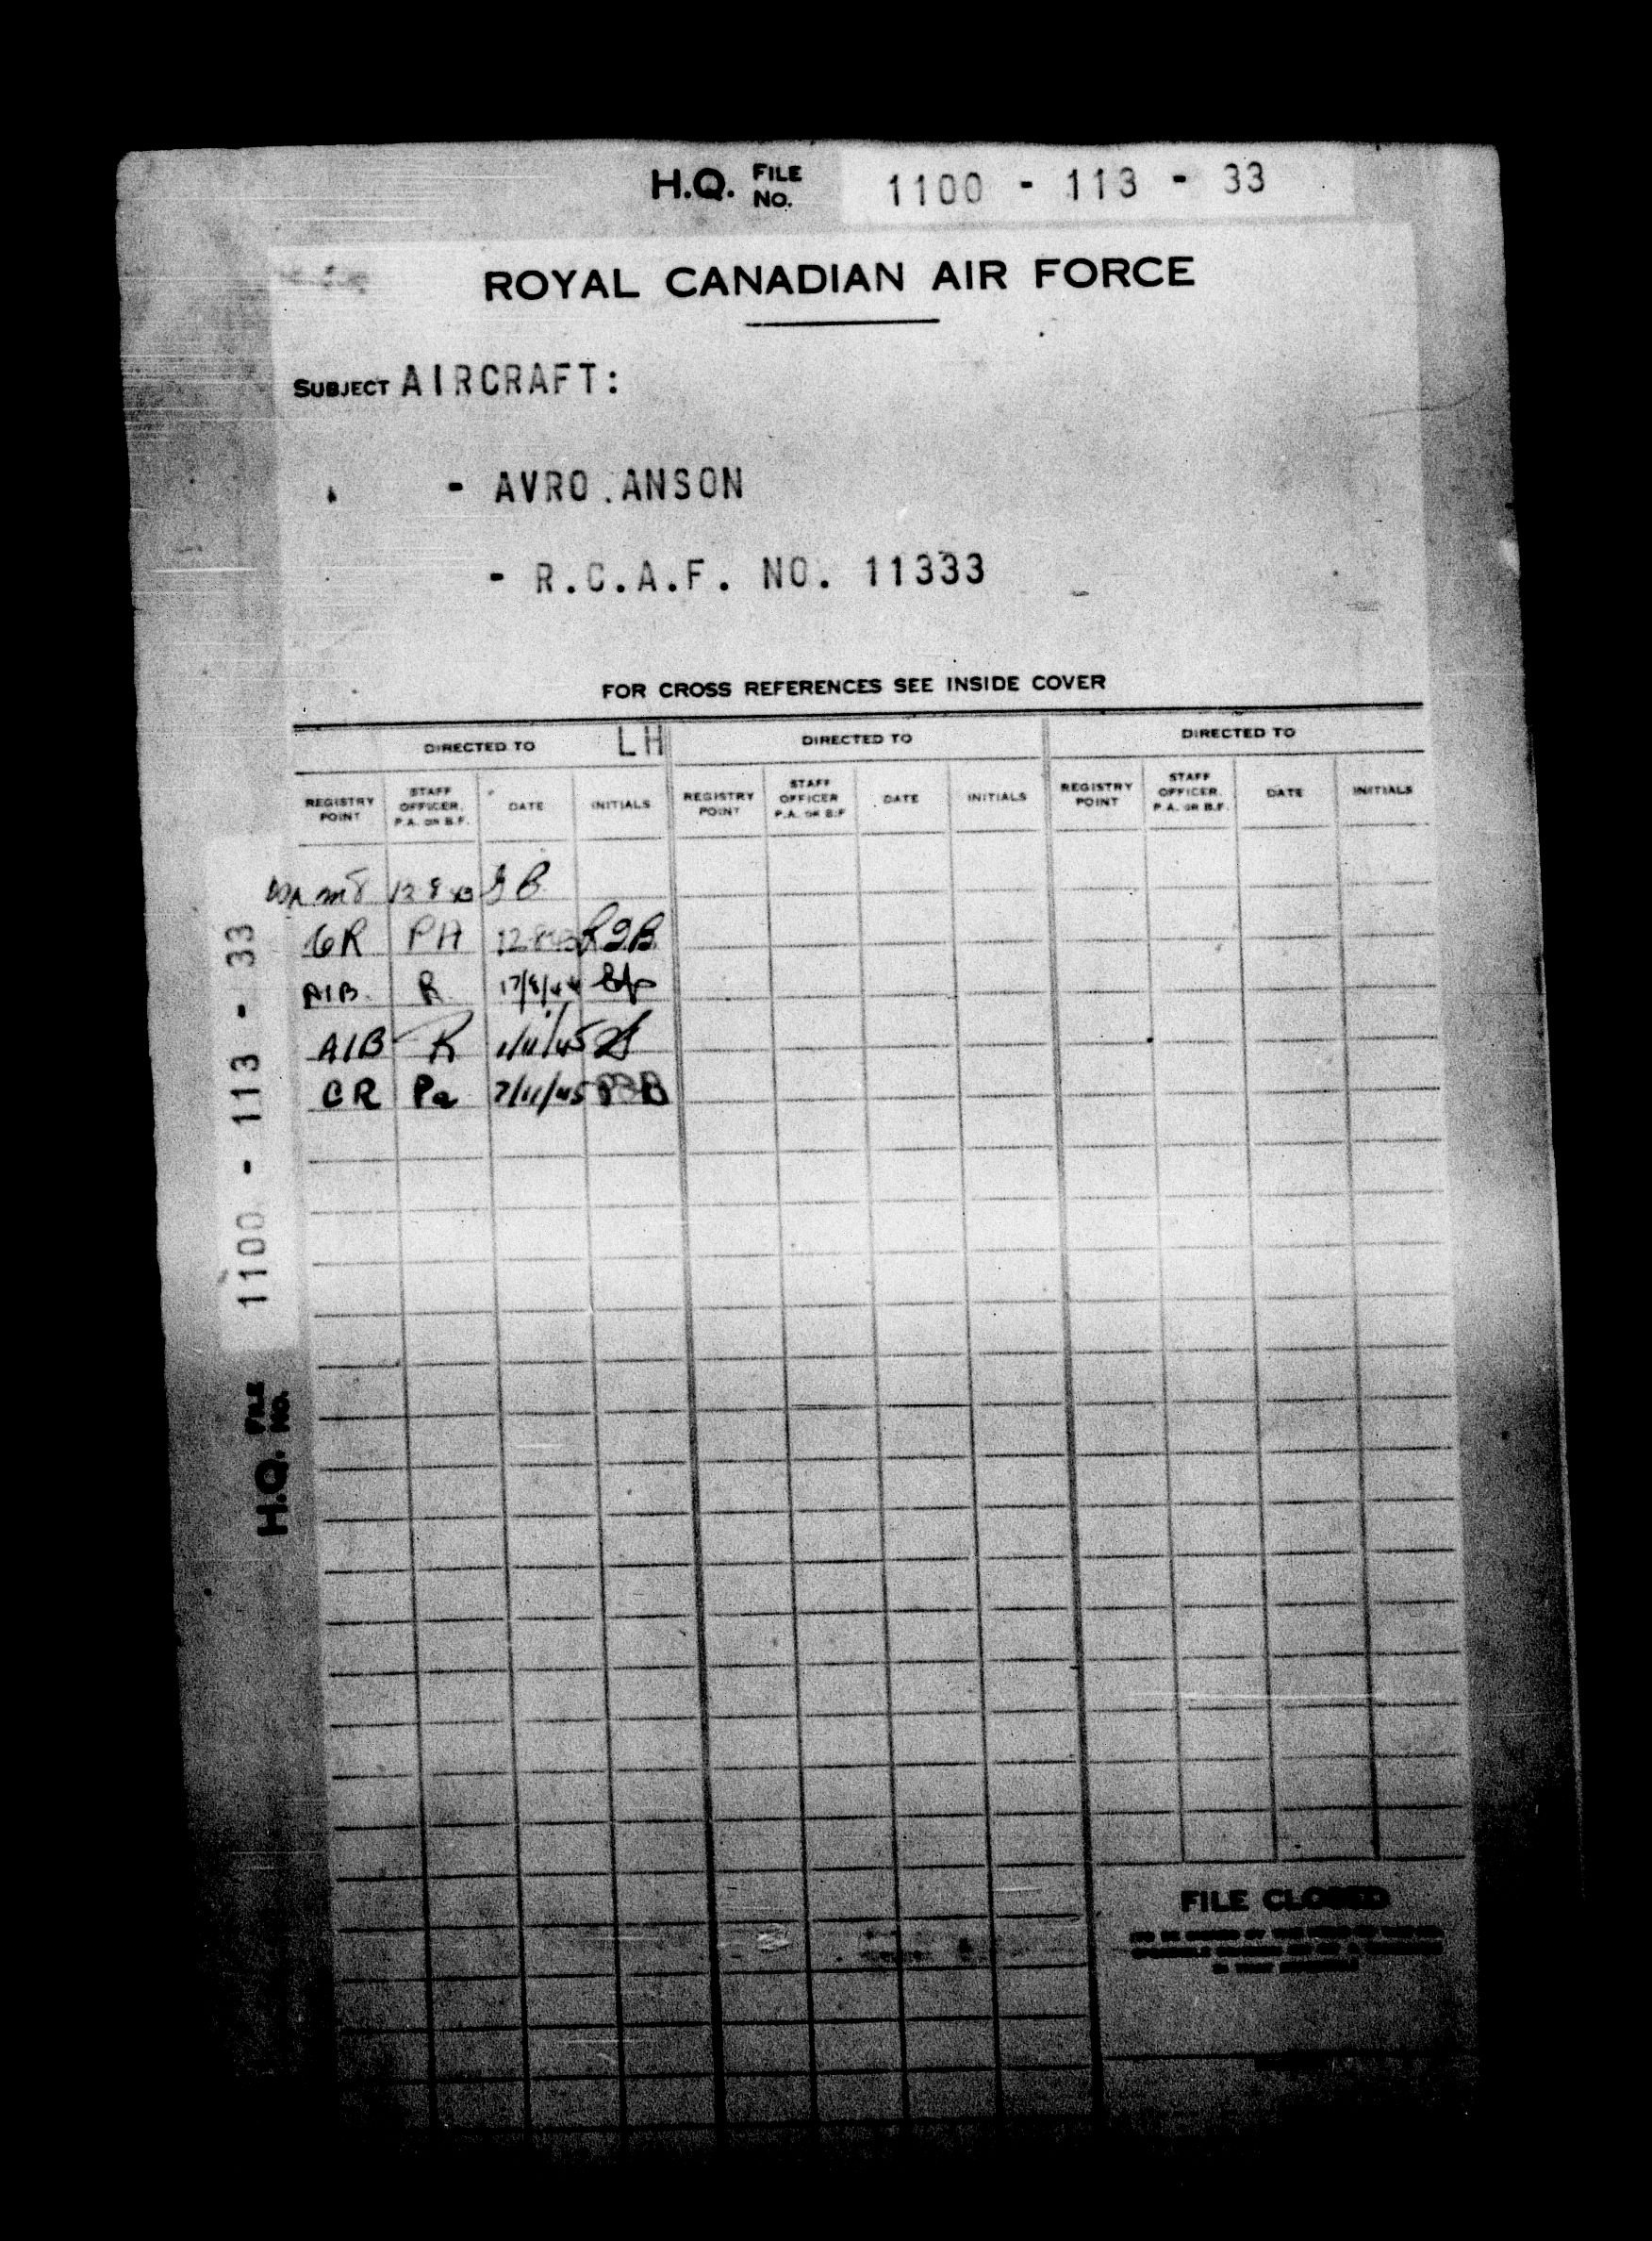 H.Q. FILE NO. 1100 - 113 - 33
ROYAL CANADIAN AIR FORCE
SUBJECT AIRCRAFT:
- AVRO ANSON
- R.C.A.F. NO. 11333
FOR CROSS REFERENCES SEE INSIDE COVER
DIRECTED TO LH DIRECTED TO DIRECTED TO
REGISTRY POINT STAFF OFFICER P.A. OR B.F. DATE INITIALS REGISTRY POINT STAFF OFFICER P.A. OR B.F DATE INITIALS REGISTRY POINT STAFF OFFICER P.A. OR B.F. DATE INITIALS
CR PA
AIB R 17/8/44
AIB R 1/11/45
CR Pa 7/11/45
H.Q. FILE NO. 1100 - 113 - 33
FILE CLOSED